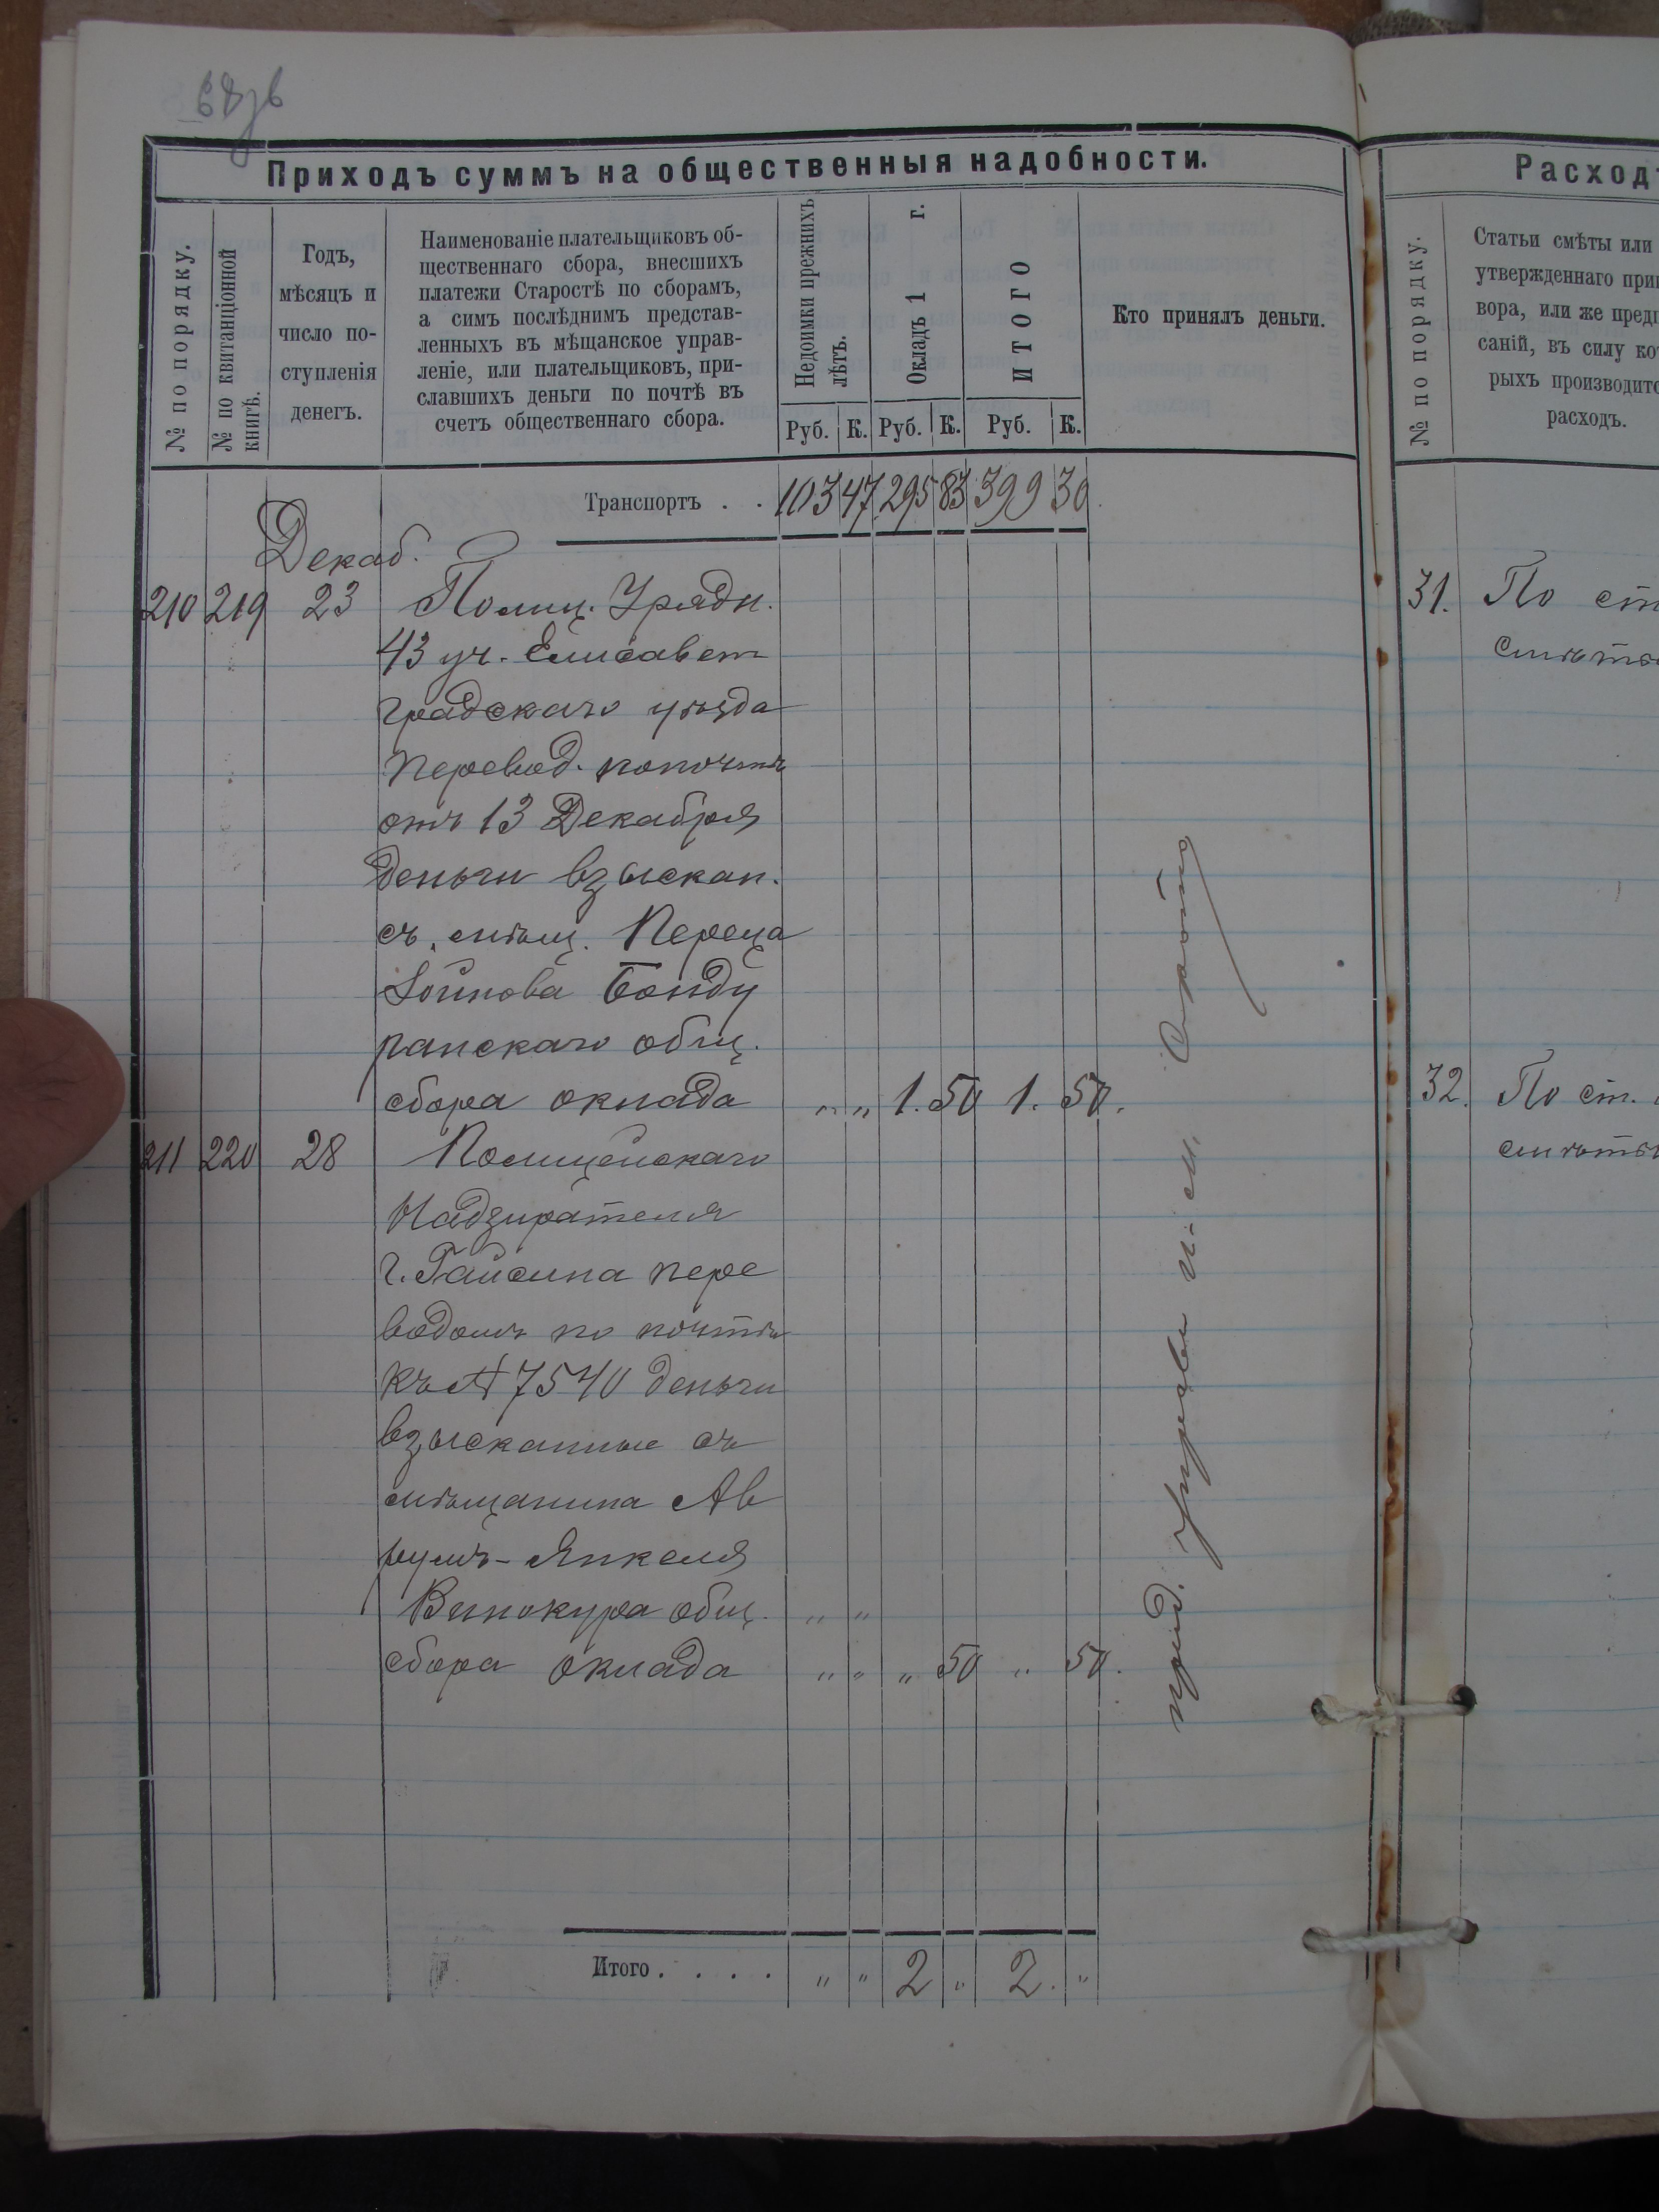 Приходъ суммъ на общественныя надобности.
№ по порядку.
№ по квитанціонной книгѣ.
Годъ,
мѣсяцъ и
число по-
ступленія
денегъ.
Наименованіе плательщиковъ об-
щественнаго сбора, внесшихъ
платежи Старостѣ по сборамъ,
а симъ послѣднимъ представ-
ленныхъ въ мѣщанское управ-
леніе, или плательщиковъ, при-
славшихъ деньги по почтѣ въ
счетъ общественнаго сбора.
Недоимки прежнихъ лѣтъ.
Окладъ 1 г.
ИТОГО
Руб. К. Руб. К. Руб. К.
Кто принялъ деньги.
Транспортъ . . 103 47 295 83 399 30
Декаб.
210 219 23 Полиц. Урядн.
43 уч. Елисавет
градскаго уѣзда
перевод. попочтѣ
отъ 13 Декабря
деньги взыскан.
съ мѣщ. Переца
Бонду
ранскаго общ.
сбора оклада „ „ 1. 50 1. 50.
211 220 28 Полицейскаго
Надзирателя
г. Гайсина пере
водомъ по почтѣ
къ № 7540 деньги
взысканные съ
мѣщанина Ав
румъ-Янкеля
Винокура общ. „ „
сбора оклада „ „ „ 50 „ 50.
Итого . . . . „ „ 2 „ 2. „
Расходъ
№ по порядку.
Статьи смѣты или
утвержденнаго при
вора, или же пред
саній, въ силу ко
рыхъ производит
расходъ.
31. По ст
смѣты
32. По ст.
смѣты